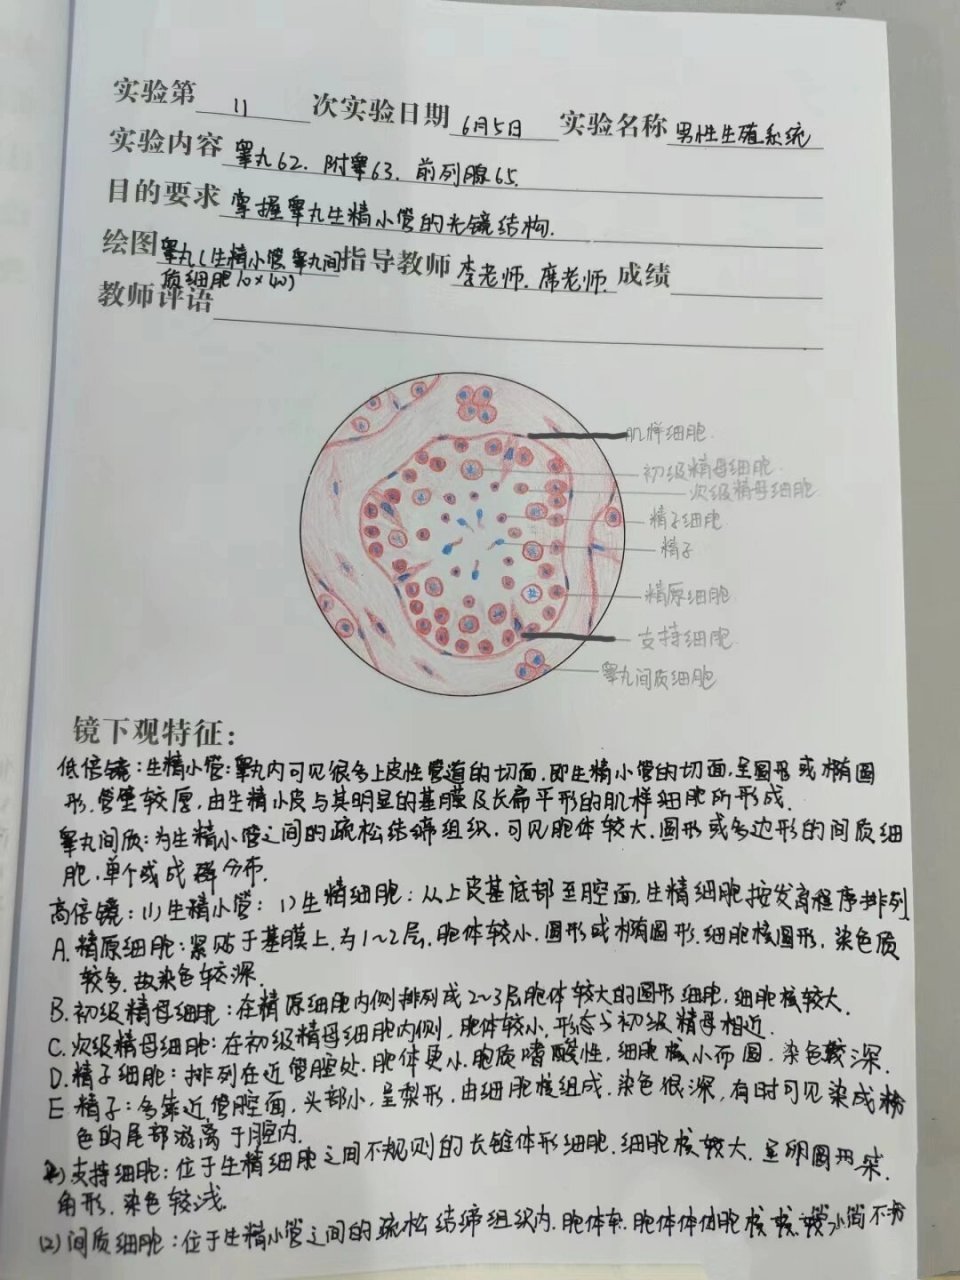 实验第 11 次实验日期 6月5日 实验名称 男性生殖系统
实验内容 睾丸62. 附睾63. 前列腺65.
目的要求 掌握睾丸生精小管的光镜结构.
绘图 睾丸(生精小管 睾丸间 指导教师 李老师. 席老师. 成绩
质细胞 10×40)
教师评语
肌样细胞.
初级精母细胞.
次级精母细胞
精子细胞
精子
精原细胞
支持细胞
睾丸间质细胞
镜下观特征:
低倍镜:生精小管:睾丸内可见很多上皮性管道的切面.即生精小管的切面,呈圆形或椭圆
形.管壁较厚,由生精小皮与其明显的基膜及长扁平形的肌样细胞所形成.
睾丸间质:为生精小管之间的疏松结缔组织.可见胞体较大.圆形或多边形的间质细
胞.单个或成群分布.
高倍镜:(1)生精小管: 1)生精细胞:从上皮基底部至腔面,生精细胞按发育程序排列
A.精原细胞:紧贴于基膜上.为1~2层,胞体较小.圆形或椭圆形.细胞核圆形,染色质
较多.故染色较深.
B.初级精母细胞:在精原细胞内侧排列成2~3层胞体较大的圆形细胞,细胞核较大.
C.次级精母细胞:在初级精母细胞内侧,胞体较小,形态与初级精母相近.
D.精子细胞:排列在近管腔处.胞体更小.胞质嗜酸性,细胞核小而圆.染色较深.
E 精子:多靠近管腔面.头部小.呈梨形.由细胞核组成.染色很深,有时可见染成粉
色的尾部游离于腔内.
2)支持细胞:位于生精细胞之间不规则的长锥体形细胞.细胞核较大.呈卵圆形
角形.染色较浅.
(2)间质细胞:位于生精小管之间的疏松结缔组织内.胞体